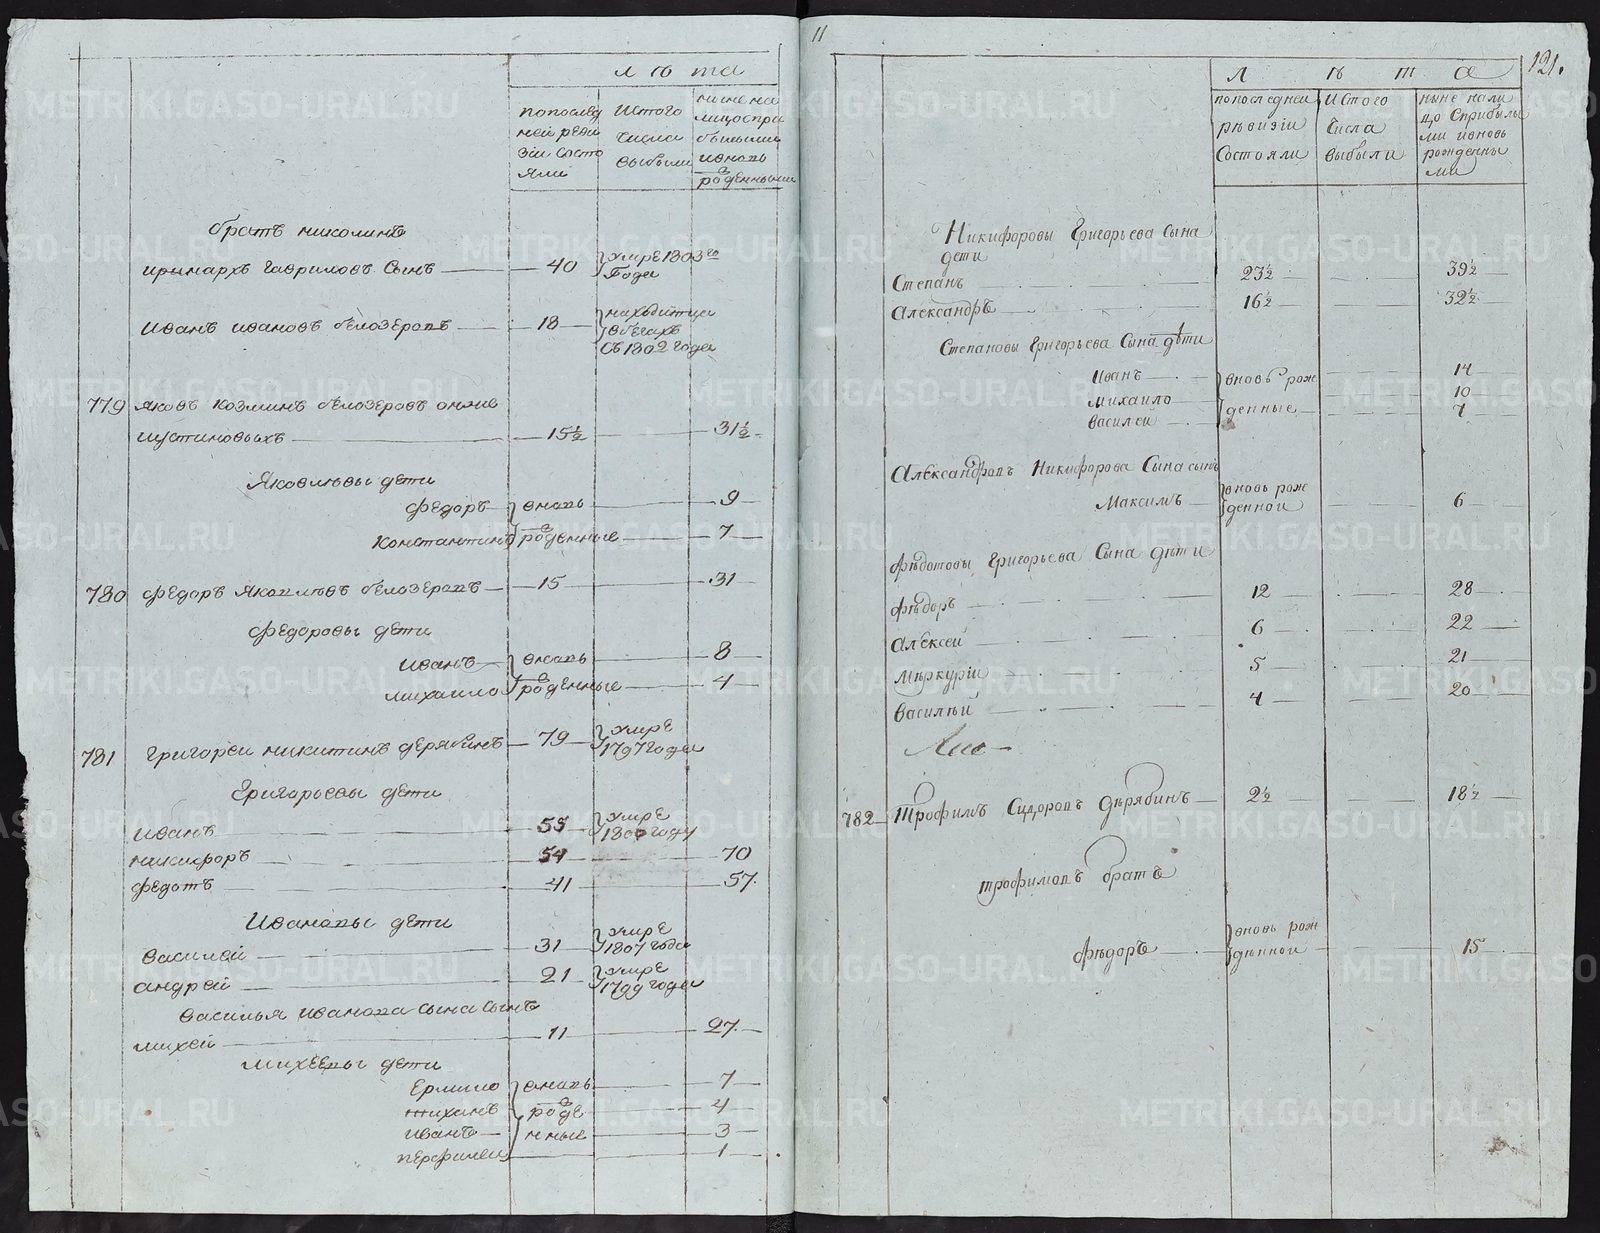 лѣта
попослед
ней реви
зіи состо
яли
Истого
числа
выбыли
ныне на
лицо спри
былыми
ивновь
рожденными
братъ николинъ
иринархъ Гавриловъ Сынъ 40 умре 1803го
Года
Иванъ ивановъ бѣлозеровъ 18 находитца
вбегахъ
съ 1802 года
779 яковъ козминъ бѣлозеровъ онже
иустиновыхъ 15½ 31½
Яковлѣвы дети
Федоръ вновь 9
константинъ рожденные 7
780 Федоръ яковлѣвъ бѣлозеровъ 15 31
Федоровы дети
Иванъ вновь 8
михаило рожденные 4
781 григореи никитинъ дерябинъ 79 умре
1797 года
Григорьевы дети
иванъ 55 умре
1800 году
никифоръ 54 70
федотъ 41 57
Ивановы дети
василей 31 умре
1807 года
андрей 21 умре
1799 года
василья иванова сына сынъ
михей 11 27
михеевы дети
Ермило вновь 7
тиханъ рожде 4
иванъ нные 3
перфилеи 1
11
121.
Лѣта
попоследнеи
рѣвизіи
Состояли
Истого
Числа
выбыли
ныне нали
цо Сприбылы
ми ивновь
рожденны
ми
Никифоровы Григорьева Сына
дети
Степанъ 23½ 39½
Александръ 16½ 32½
Степановы Григорьева Сына дѣти
Иванъ вновь рож 14
Михаило 10
Василей денные 7
Александровъ Никифорова Сына сынъ
Максимъ вновь рож
денной 6
Фѣдотовы Григорьева Сына дѣти
Фѣдоръ 12 28
Алексеи 6 22
Мѣркурiи 5 21
Василѣи 4 20
782 Трофимъ Сидоровъ Дѣрябинъ 2½ 18½
трофимовъ братъ
Фѣдоръ вновь рож
дѣнной 15
METRIKI.GASO-URAL.RU